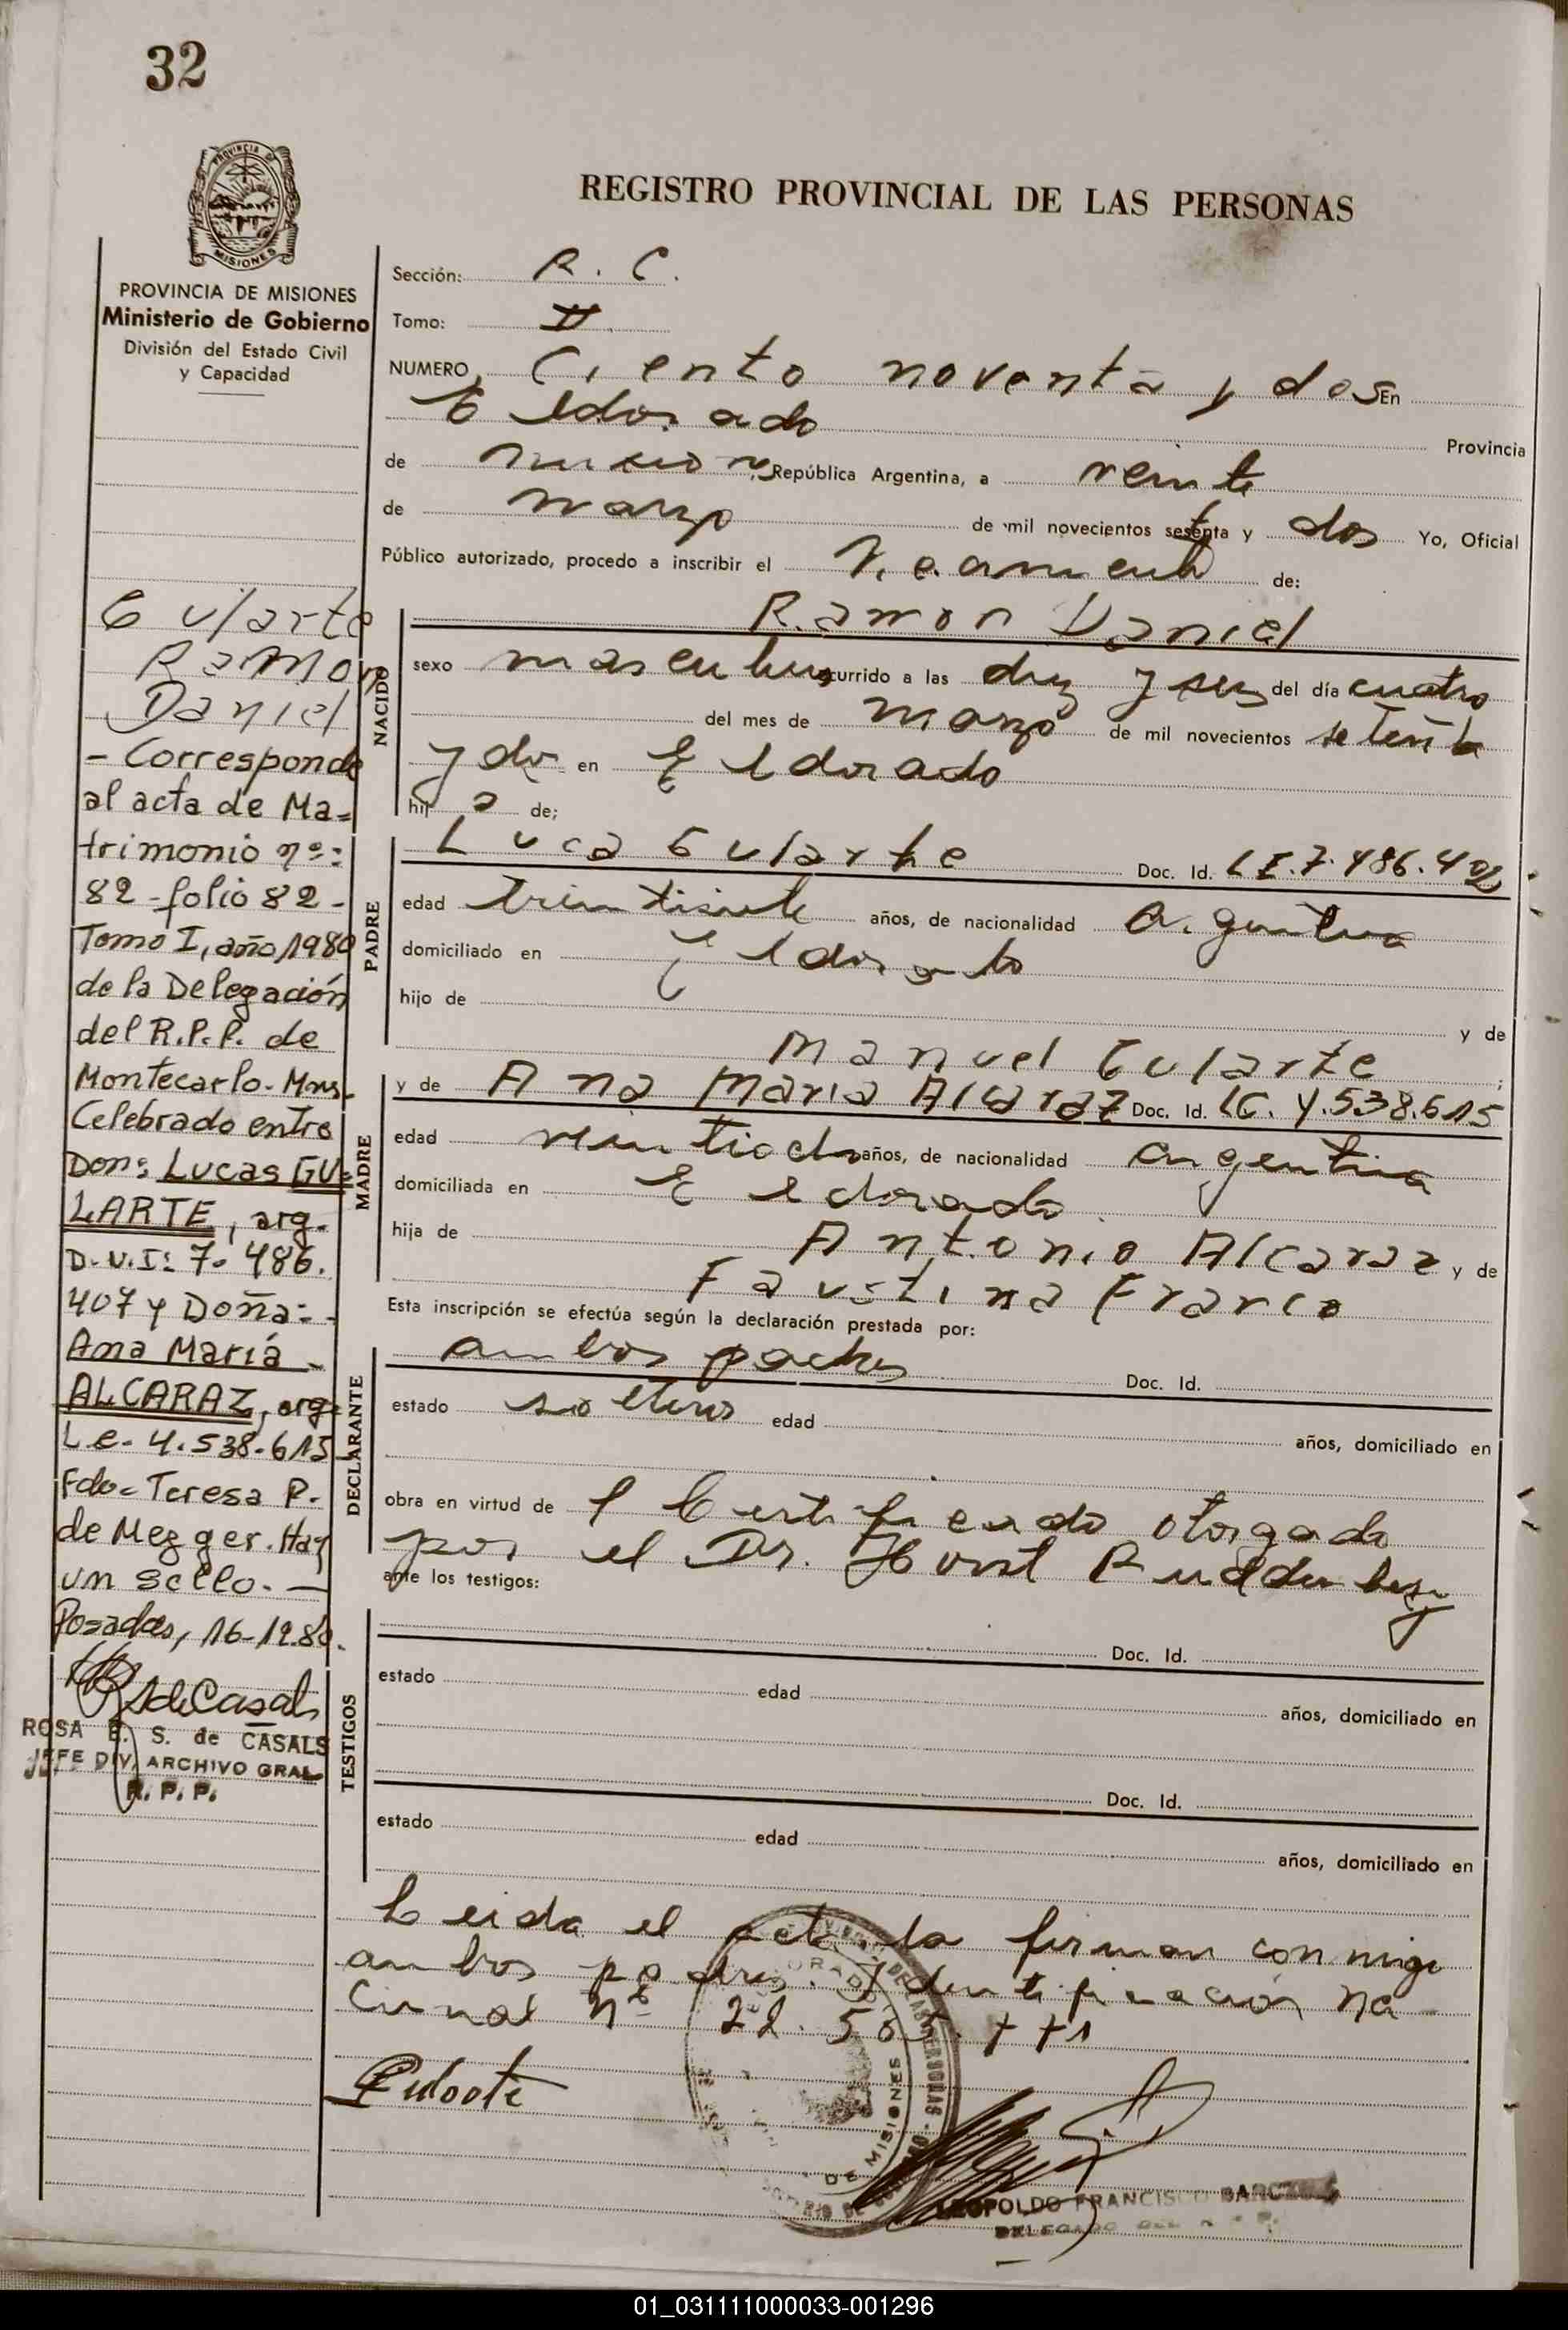 32
PROVINCIA DE
MISIONES
REGISTRO PROVINCIAL DE LAS PERSONAS
PROVINCIA DE MISIONES
Ministerio de Gobierno
División del Estado Civil
y Capacidad
Sección: R. C.
Tomo: II
NUMERO Ciento noventa y dos En
Eldorado Provincia
de Misiones República Argentina, a veinte
de marzo de mil novecientos setenta y dos Yo, Oficial
Público autorizado, procedo a inscribir el de:
Ramon Daniel
NACIDO
sexo masculino ocurrido a las diez y seis del día cuatro
del mes de marzo de mil novecientos setenta
y dos en Eldorado
hijo de;
PADRE
Luca Gularte Doc. Id. L.I. 7.486.402
edad treintisiete años, de nacionalidad Argentina
domiciliado en Eldorado
hijo de y de
Manuel Gularte ;
MADRE
y de Ana Maria Alcaraz Doc. Id. LC. 4.538.615
edad veintiocho años, de nacionalidad argentina
domiciliada en Eldorado
hija de Antonio Alcaraz y de
Faustina Franco
Esta inscripción se efectúa según la declaración prestada por:
DECLARANTE
ambos padres Doc. Id.
estado solteros edad años, domiciliado en
obra en virtud de l Certificado otorgado
por el Dr. Horst
ante los testigos:
TESTIGOS
Doc. Id.
estado edad años, domiciliado en
Doc. Id.
estado edad años, domiciliado en
Leida el acta la firman conmigo
ambos padres. Identificación Na
cional nº 22.
LEOPOLDO FRANCISCO
DELEGADO DEL
DE MISIONES
Gularte
Ramon
Daniel
- Corresponde
al acta de Ma=
trimonio nº:
82 - folio 82 -
Tomo I, año 1980
de la Delegación
del R.P.P. de
Montecarlo - Mns.
Celebrado entre
Don: Lucas GU=
LARTE, arg.
D.N.I: 7.486.
407 y Doña:
Ana María
ALCARAZ, arg.
L.C. 4.538.615
Fdo. Teresa P.
de Mezger. Hay
un sello. —
Posadas, 16-12.80.
ROSA E. S. de CASALS
JEFE DIV. ARCHIVO GRAL
R. P. P.
01_031111000033-001296